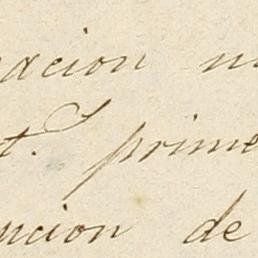 acion
t. prime
ncion de